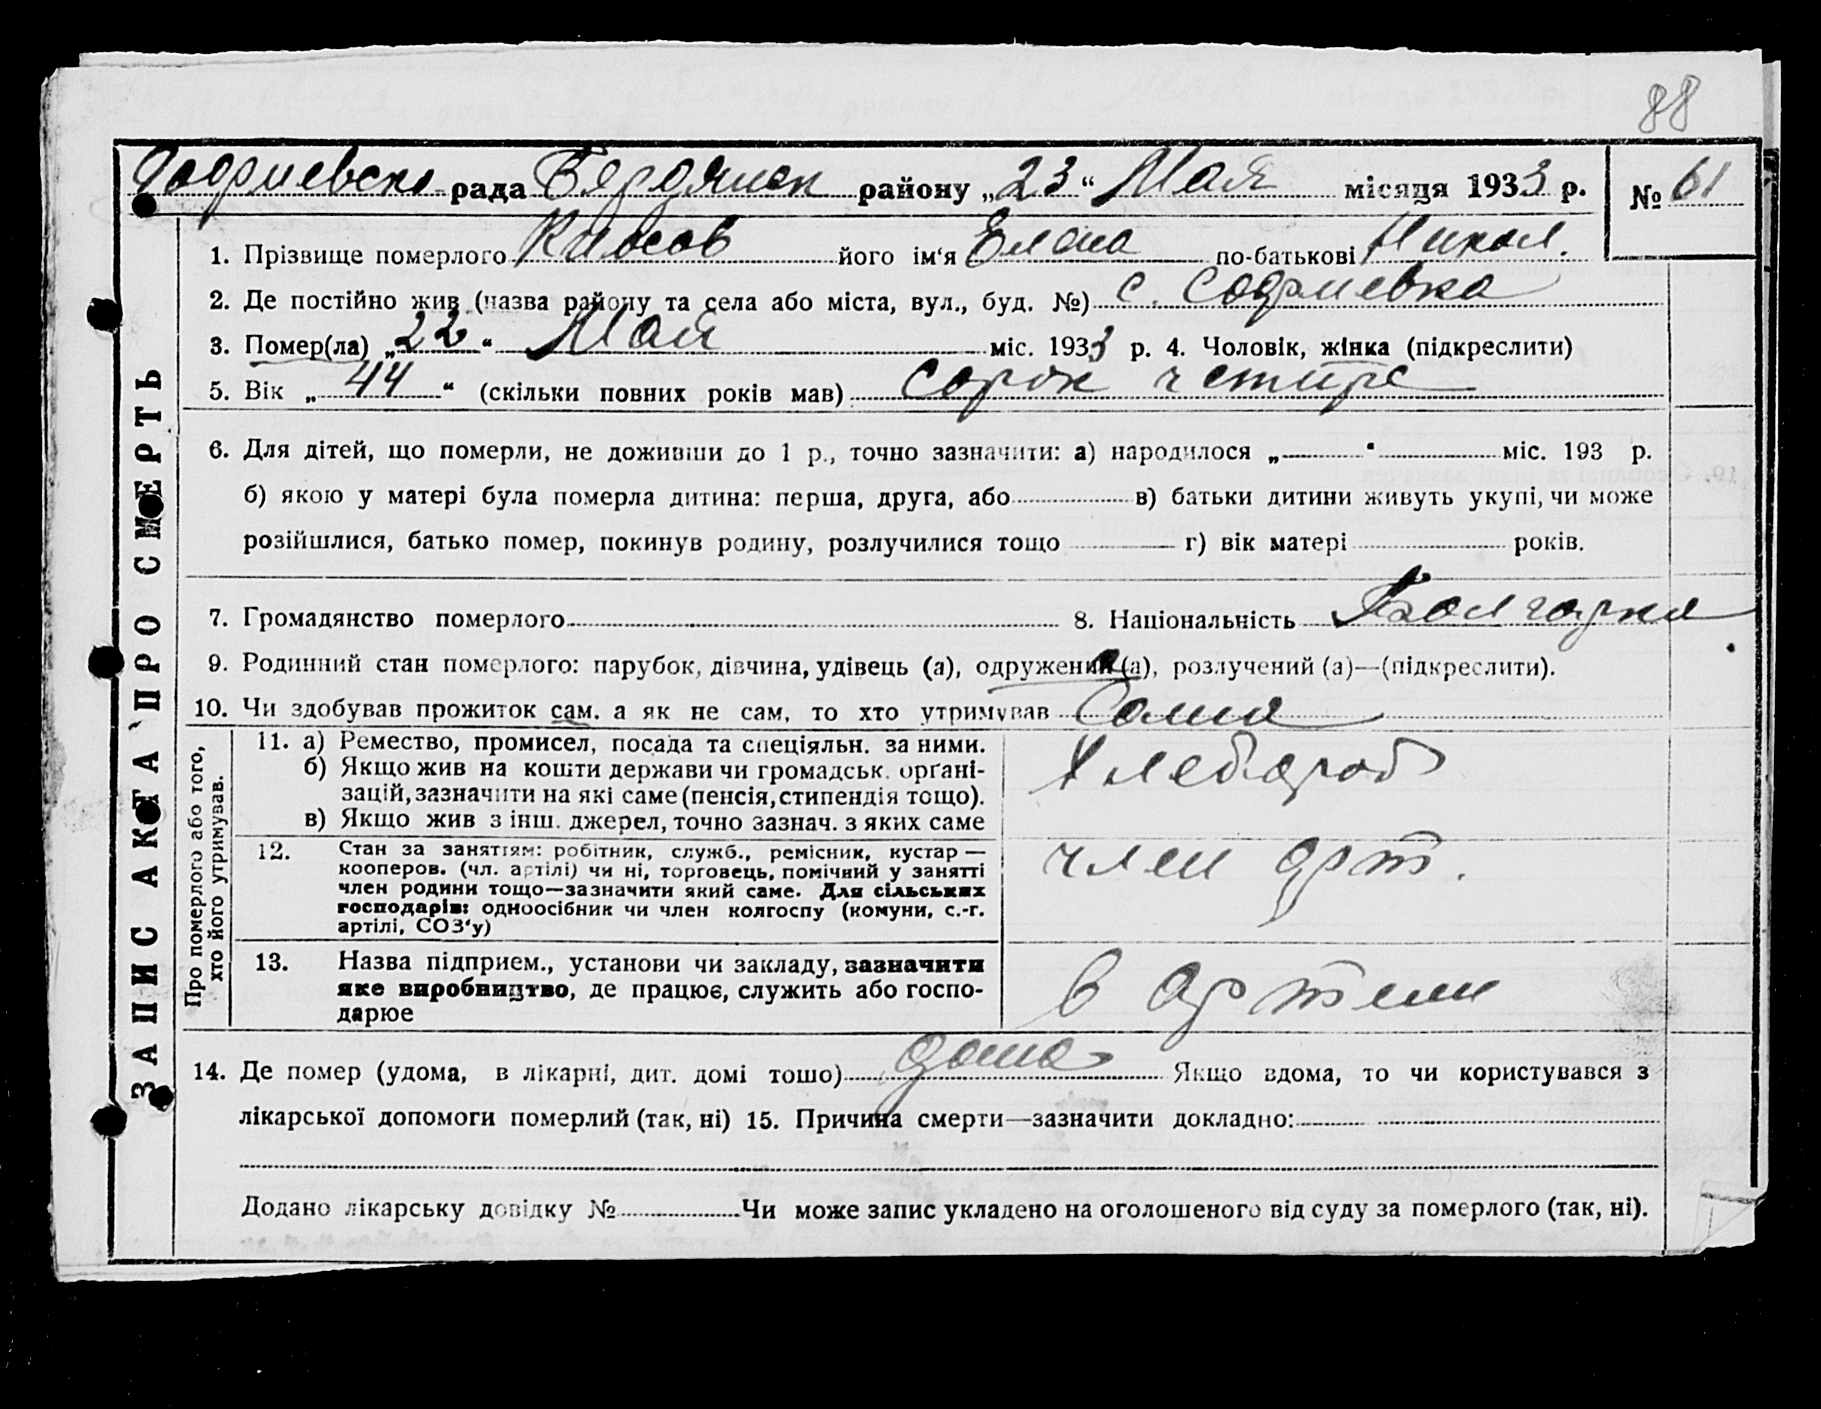 88
Софиевско рада Бердянск району „23“ Мая місяця 1933 р. № 61
ЗАПИС АКТА ПРО СМЕРТЬ
1. Прізвище померлого його ім‘я Елена по-батькові Никол.
2. Де постійно жив (назва району та села або міста, вул., буд. №) с. Софиевка
3. Помер(ла) „22“ Мая міс. 1933 р. 4. Чоловік, жінка (підкреслити)
5. Вік „44“ (скільки повних років мав) сорок четире
6. Для дітей, що померли, не доживши до 1 р., точно зазначити: а) народилося „ “ міс. 193 р.
б) якою у матері була померла дитина: перша, друга, або в) батьки дитини живуть укупі, чи може
розійшлися, батько помер, покинув родину, розлучилися тощо г) вік матері років.
7. Громадянство померлого 8. Національність Болгарка
9. Родинний стан померлого: парубок, дівчина, удівець (а), одружений (а), розлучений (а)—(підкреслити).
10. Чи здобував прожиток сам, а як не сам, то хто утримував Сама
Про померлого або того, хто його утримував.
11. а) Ремество, промисел, посада та спеціяльн. за ними.
б) Якщо жив на кошти держави чи громадськ. органі-
зацій, зазначити на які саме (пенсія, стипендія тощо).
в) Якщо жив з інш. джерел, точно зазнач. з яких саме
Хлебороб
12. Стан за заняттям: робітник, служб., ремісник, кустар —
кооперов. (чл. артілі) чи ні, торговець, помічний у занятті
член родини тощо—зазначити який саме. Для сільських
господарів: одноосібник чи член колгоспу (комуни, с.-г.
артілі, СОЗ‘у)
член арт.
13. Назва підприєм., установи чи закладу, зазначити
яке виробництво, де працює, служить або госпо-
дарює
в артели
14. Де помер (удома, в лікарні, дит. домі тощо) дома Якщо вдома, то чи користувався з
лікарської допомоги померлий (так, ні) 15. Причина смерти—зазначити докладно:
Додано лікарську довідку № Чи може запис укладено на оголошеного від суду за померлого (так, ні).